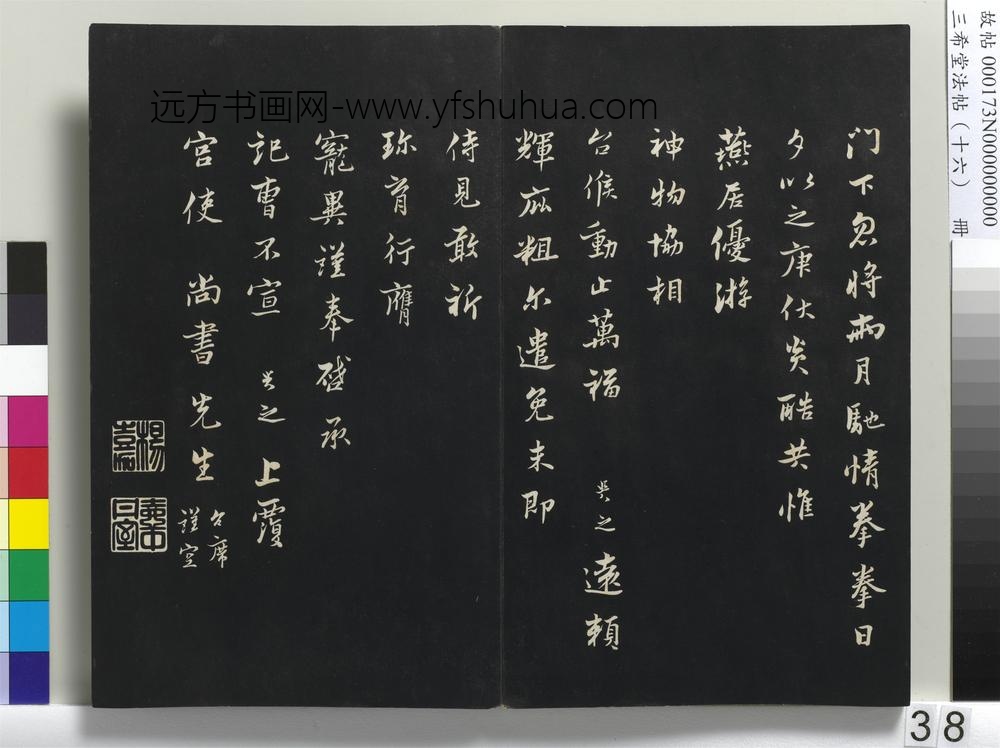 门下忽将兩月馳情拳拳日
夕以之庚伏炎酷共惟
燕居優游
神物協相
台候動止萬福 之遠賴
輝庇粗尔遣免未即
侍見敢祈
珎育行膺
寵異謹奉啓承
記曹不宣 之上覆
宫使 尚書先生
台席
謹空
远方书画网-www.yfshuhua.com
故帖000173N000000000
三希堂法帖(十六) 冊
38